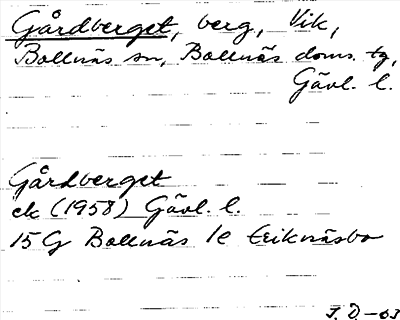 Gårdberget, berg, Vik,
Bollnäs sn, Bollnäs doms. tg,
Gävl. l.
Gårdberget
ek (1958) Gävl. l.
15 G Bollnäs 1e Eriknäsbo
J. D. -63